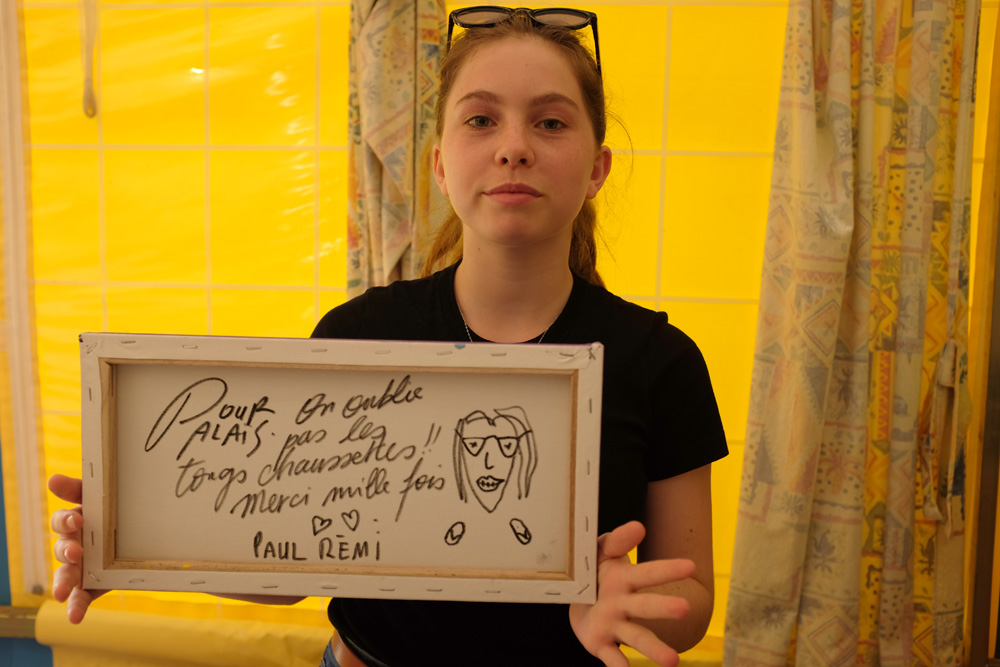 Pour On oublie
ALAIS. pas les
tongs chaussettes!!
merci mille fois
PAUL RÉMI